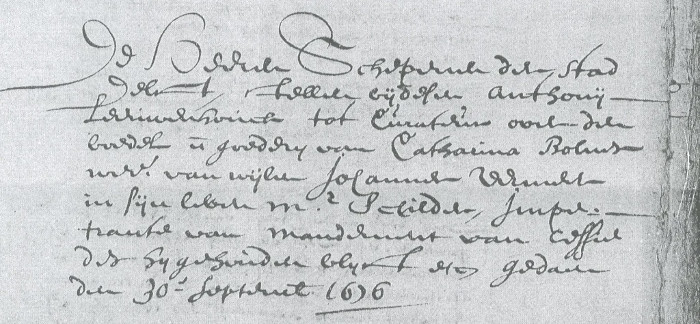 De Heeren Schepenen der Stad
Delft, stellen bij desen Anthonij
Leeuwenhoeck tot Curateur over den
boedel en goederen van Catharina Bolnes
wed.e van wijlen Johannes Vermeer
in sijn leven m.r Schilder, Impe-
trante van mandement van cessie
des hij gehouden blijft etc. gedaen
den 30.e Septemb. 1676